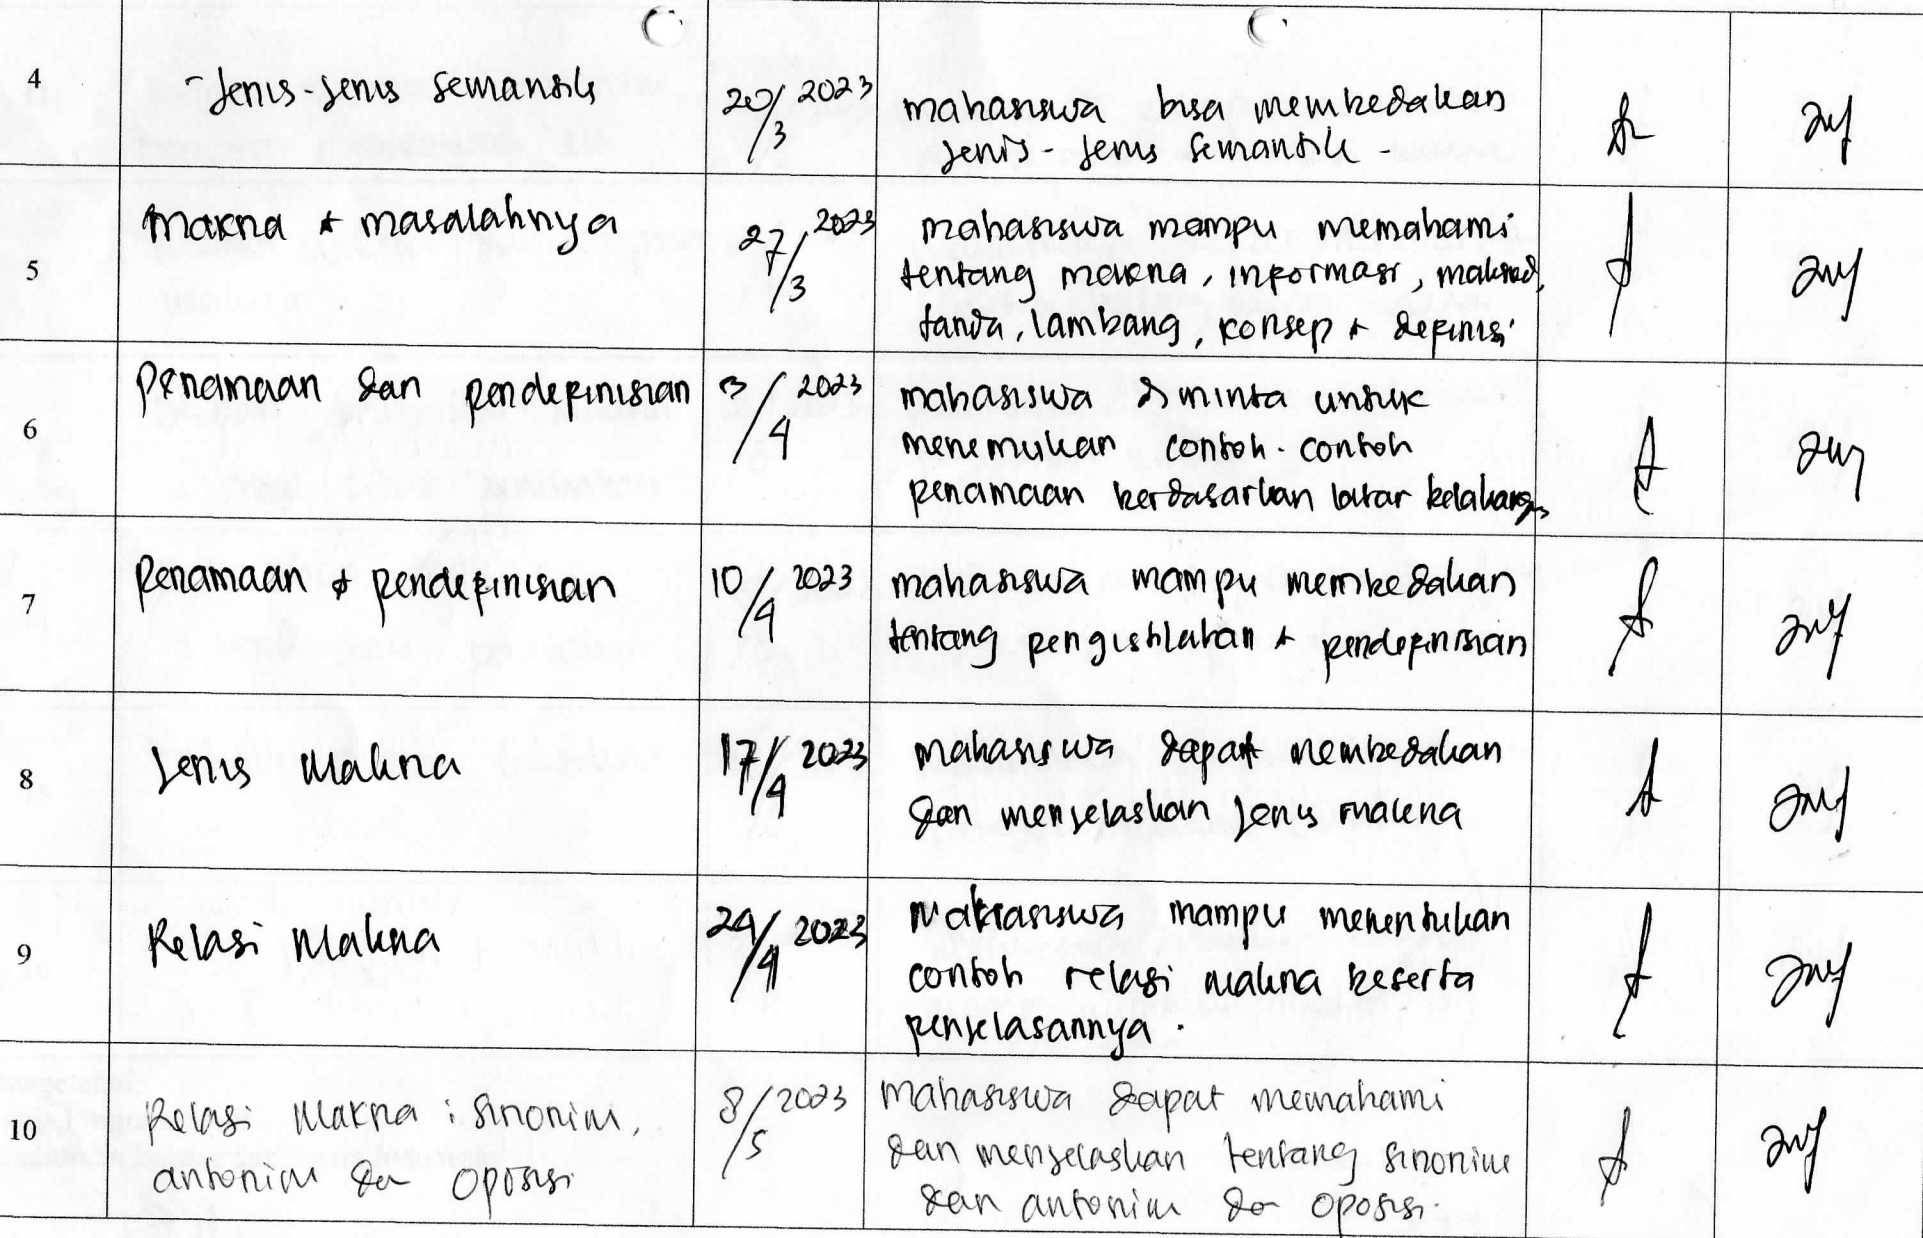 4
- Jenis-jenis semantik
20/3 2023
mahasiswa bisa membedakan
jenis-jenis semantik -
5
Makna & masalahnya
27/3 2023
mahasiswa mampu memahami
tentang makna, informasi, maksud,
tanda, lambang, konsep & definisi
6
Penamaan dan pendefinisian
3/4 2023
mahasiswa diminta untuk
menemukan contoh-contoh
penamaan berdasarkan latar belakang
7
Penamaan & pendefinisian
10/4 2023
mahasiswa mampu membedakan
tentang pengistilahan & pendefinisian
8
Jenis Makna
17/4 2023
Mahasiswa dapat membedakan
dan menjelaskan jenis makna
9
Relasi Makna
24/4 2023
Mahasiswa mampu menentukan
contoh relasi makna beserta
penjelasannya.
10
Relasi Makna : sinonim,
antonim dan oposisi
8/5 2023
Mahasiswa dapat memahami
dan menjelaskan tentang sinonim
dan antonim dan oposisi.